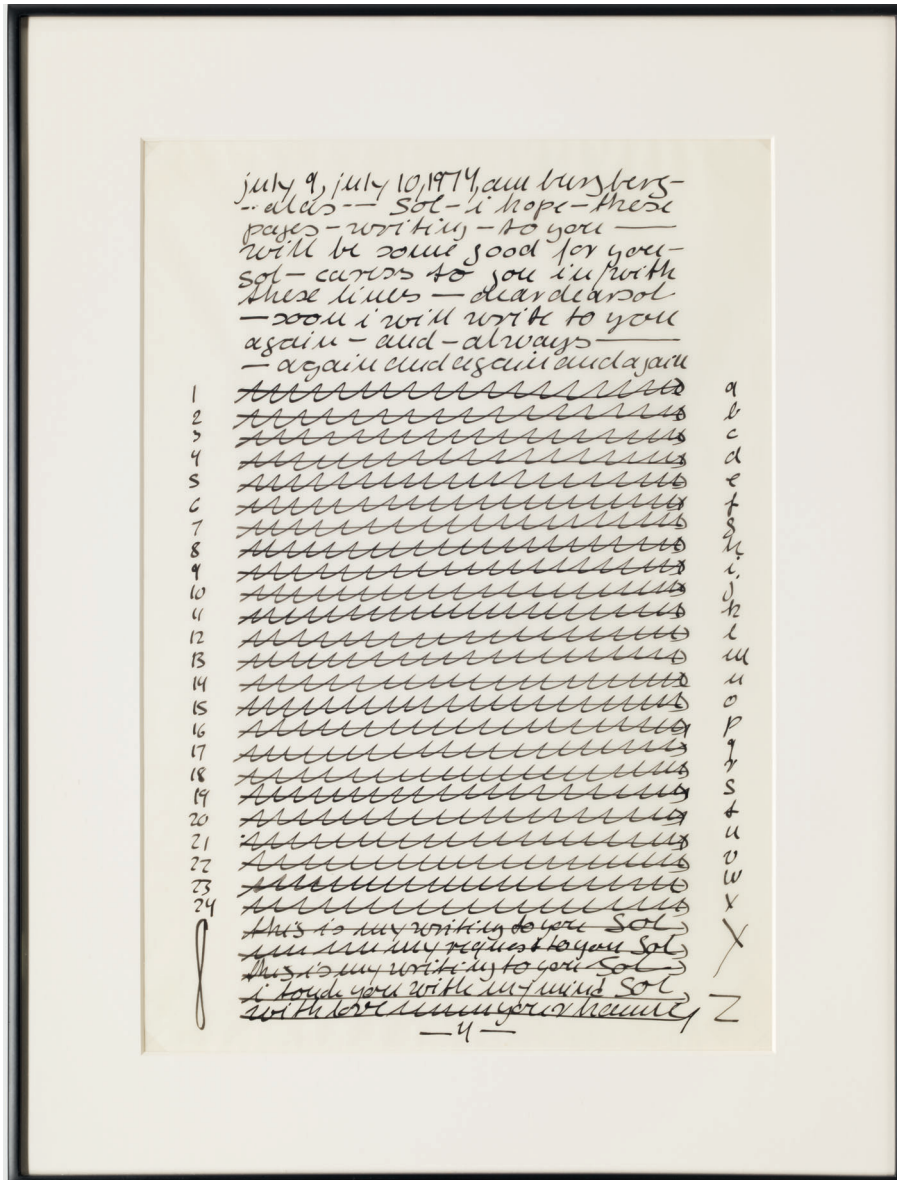 july 9, july 10, 1974, am burgberg-
-- alas -- Sol - i hope - these
pages - writing - to you ——
will be some good for you -
sol - caress to you in/with
these lines — dear dear sol
— soon i will write to you
again - and - always ——
— again and again and again
1 a
2 b
3 c
4 d
5 e
6 f
7 g
8 h
9 i
10 j
11 k
12 l
13 m
14 n
15 o
16 p
17 q
18 r
19 s
20 t
21 u
22 v
23 w
24 x
this is my writing to you Sol
my request to you Sol
this is my writing to you Sol
i touch you with my mind Sol
with love your hanne
y
z
— 4 —